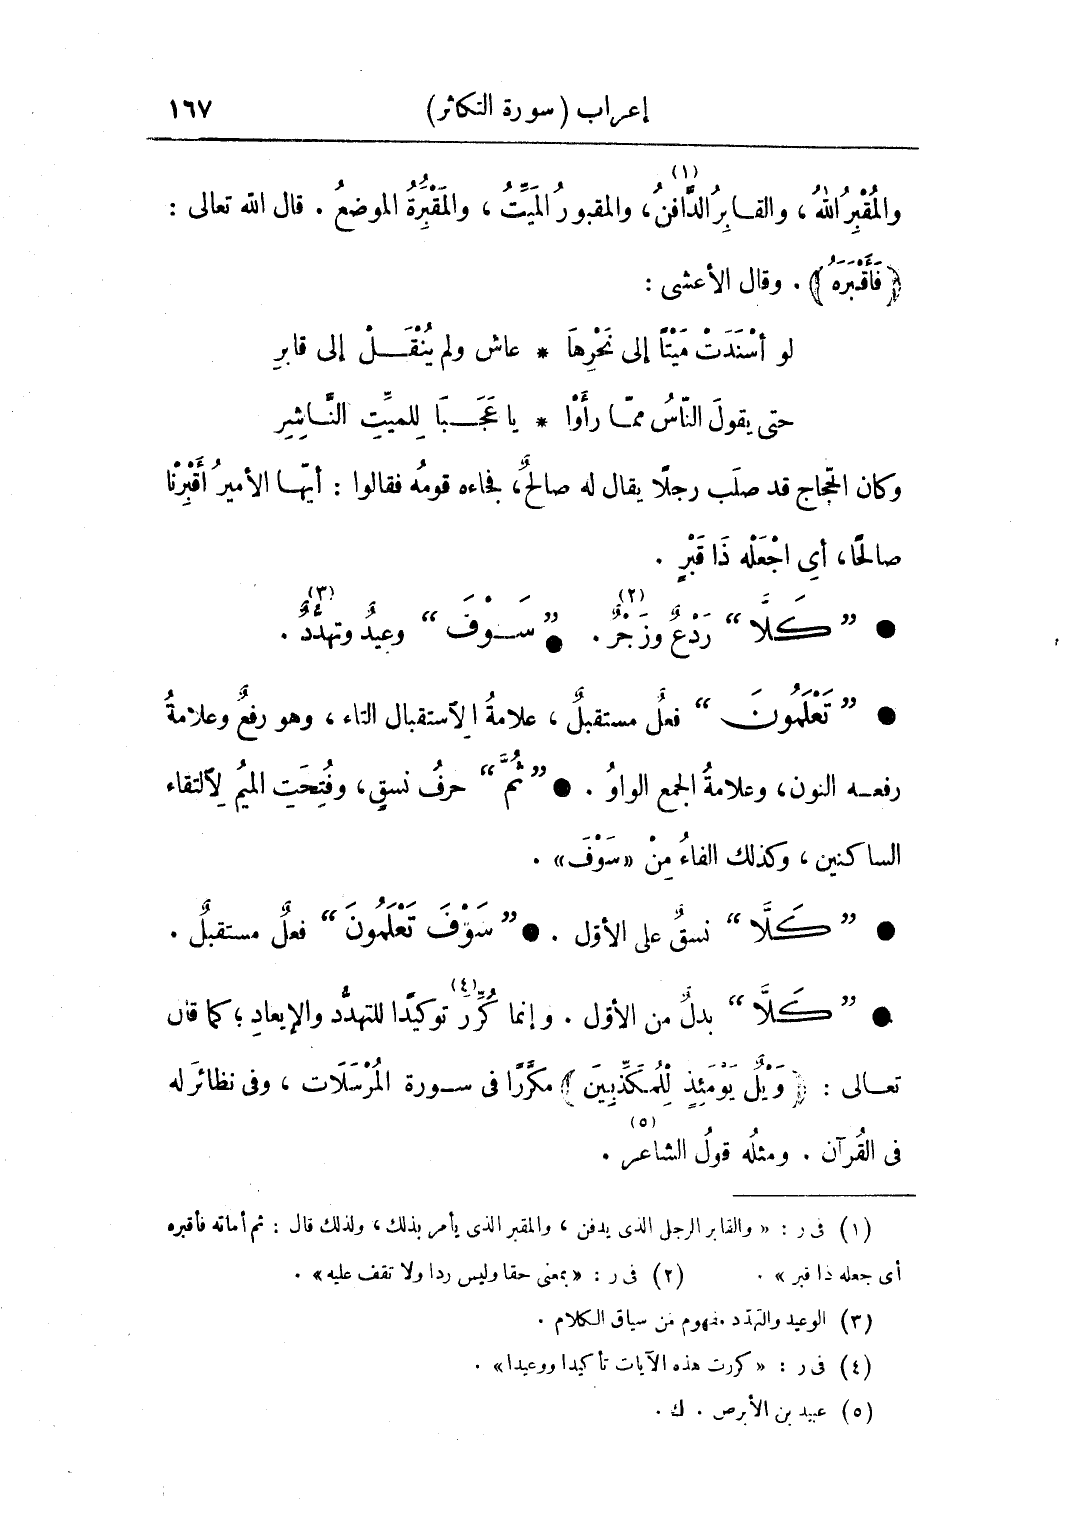 إعراب (سورة التكاثر) ١٦٧
والمُقْبِرُ اللهُ ، والقـابِرُ الدَّافنُ(١)، والمقبورُ المَيِّتُ ، والمَقْبُرَةُ الموضعُ . قال الله تعالى :
﴿فَأَقْبَرَهُ﴾ . وقال الأعشى :
لو أسْنَدَتْ مَيْتًا إلى نَحْرِهَا * عاش ولم يُنْقَـــلْ إلى قابرِ
حتى يقولَ النّاسُ ممّـا رأَوْا * يا عَجَـــبَا لِلميِّتِ النَّـاشِرِ
وكان الحجّاج قد صلَب رجلًا يقال له صالحٌ، فجاءه قومُه فقالوا : أيّهـا الأميرُ أَقْبِرْنا
صالحًا، أي اجْعَلْه ذَا قَبْرٍ .
● ” كَلَّا “ رَدْعٌ وزَجْرٌ(٢) . ● ” سَــوْفَ “ وعيدٌ وتهدُّدٌ(٣) .
● ” تَعْلَمُونَ “ فعلٌ مستقبلٌ ، علامةُ الاستقبال التاء ، وهو رفعٌ وعلامةُ
رفعـه النون، وعلامةُ الجمع الواوُ . ● ” ثُمَّ “ حرفُ نسقٍ، وفُتِحَتِ الميمُ لِآلتقاء
الساكنين ، وكذلك الفاءُ مِنْ «سَوْفَ» .
● ” كَلَّا “ نسقٌ على الأوّل . ● ” سَوْفَ تَعْلَمُونَ “ فعلٌ مستقبلٌ .
● ” كَلَّا “ بدلٌ من الأوّل . وإنما كُرِّرَ(٤) توكيدًا للتهدُّد والإيعادِ ؛ كما قال
تعـالى : ﴿وَيْلٌ يَوْمَئِذٍ لِلْمُكَذِّبِينَ﴾ مكرَّرًا فى ســورة المُرْسَلَات ، وفى نظائرَ له
فى القُرآن . ومثلُه قولُ الشاعر(٥) .
(١) فى ر : « والقابر الرجل الذى يدفن ، والمقبر الذى يأمر بذلك ، ولذلك قال : ثم أماته فأقبره
أى جعله ذا قبر » . (٢) فى ر : «بمعنى حقا وليس ردا ولا تقف عليه» .
(٣) الوعيد والتهدّد مفهوم من سياق الكلام .
(٤) فى ر : « كررت هذه الآيات تأكيدا ووعيدا» .
(٥) عبيد بن الأبرص . ك .